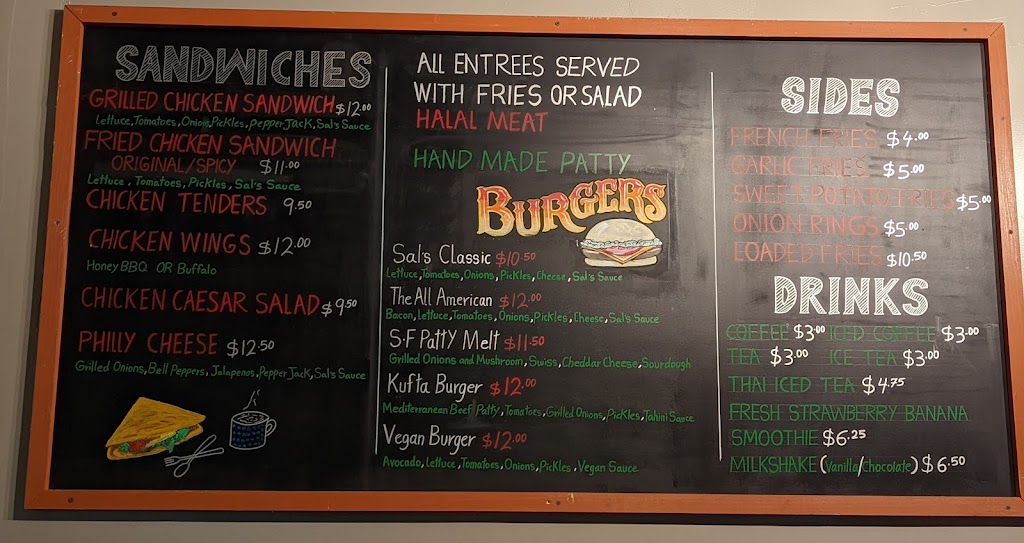 SANDWICHES
GRILLED CHICKEN SANDWICH $12.00
Lettuce, Tomatoes, Onion, Pickles, Pepper Jack, Sal's Sauce
FRIED CHICKEN SANDWICH
ORIGINAL/SPICY $11.00
Lettuce, Tomatoes, Pickles, Sal's Sauce
CHICKEN TENDERS 9.50
CHICKEN WINGS $12.00
Honey BBQ OR Buffalo
CHICKEN CAESAR SALAD $9.50
PHILLY CHEESE $12.50
Grilled Onions, Bell Peppers, Jalapenos, Pepper Jack, Sal's Sauce
ALL ENTREES SERVED
WITH FRIES OR SALAD
HALAL MEAT
HAND MADE PATTY
BURGERS
Sal's Classic $10.50
Lettuce, Tomatoes, Onions, Pickles, Cheese, Sal's Sauce
The All American $12.00
Bacon, Lettuce, Tomatoes, Onions, Pickles, Cheese, Sal's Sauce
S.F Patty Melt $11.50
Grilled Onions and Mushroom, Swiss, Cheddar Cheese, Sourdough
Kufta Burger $12.00
Mediterranean Beef Patty, Tomatoes, Grilled Onions, Pickles, Tahini Sauce
Vegan Burger $12.00
Avocado, Lettuce, Tomatoes, Onions, Pickles, Vegan Sauce
SIDES
FRENCH FRIES $4.00
GARLIC FRIES $5.00
SWEET POTATO FRIES $5.00
ONION RINGS $5.00
LOADED FRIES $10.50
DRINKS
COFFEE $3.00 ICED COFFEE $3.00
TEA $3.00 ICE TEA $3.00
THAI ICED TEA $4.75
FRESH STRAWBERRY BANANA
SMOOTHIE $6.25
MILKSHAKE (Vanilla/Chocolate) $6.50